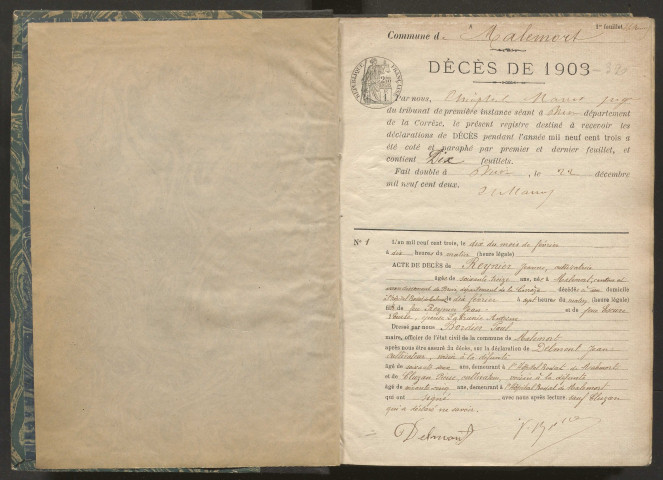 1er feuillet
Commune d Malemort
DÉCÈS DE 1903
RÉPUBLIQUE FRANÇAISE
Par nous,
du tribunal de première instance séant à Brive département
de la Corrèze, le présent registre destiné à recevoir les
déclarations de DÉCÈS pendant l'année mil neuf cent trois a
été coté et paraphé par premier et dernier feuillet, et
contient Dix feuillets.
Fait double à Brive, le 22 décembre
mil neuf cent deux.
N° 1 L'an mil neuf cent trois, le dix du mois de février
à dix heures du matin (heure légale)
ACTE DE DÉCÈS de Reynier Jeanne, cultivatrice
âgée de soixante treize ans, née à Malemort, canton et
arrondissement de Brive, département de la Corrèze décédée à son domicile
le dix février à sept heures du matin, (heure légale)
fille de feu Reynier Jean et de feue
Dressé par nous Bordier Paul
maire, officier de l'état civil de la commune de Malemort
après nous être assuré du décès, sur la déclaration de Delmont Jean
cultivateur, voisin de la défunte
âgé de soixante ans, demeurant à l'hôpital de Malemort
et de Cluzan cultivateur, voisin de la défunte
âgé de ans, demeurant à l'hôpital de Malemort
qui ont signé avec nous après lecture, sauf Cluzan
qui a déclaré ne savoir.
Delmont